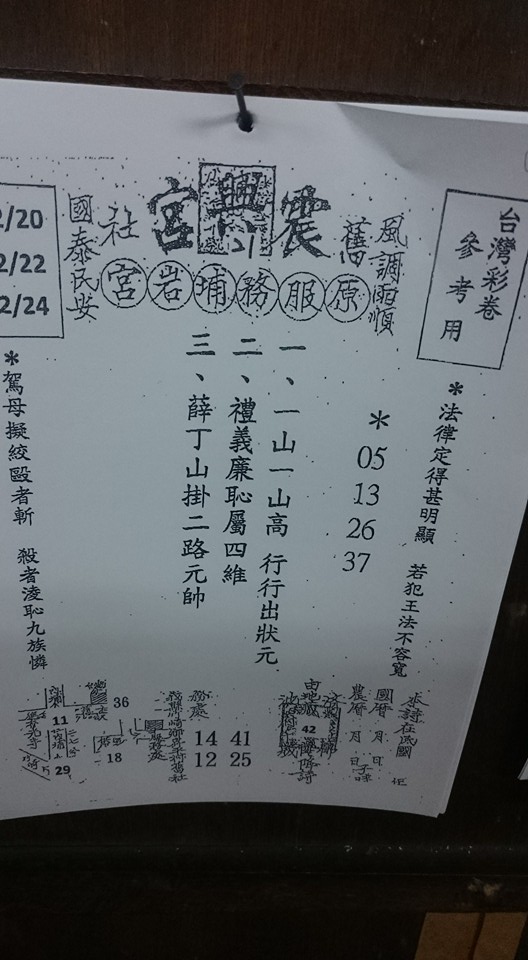 台灣彩卷
參考用
風調雨順
舊
震興宮
21
社
國泰民安
原服務埔岩宮
2/20
2/22
2/24
*法律定得甚明顯 若犯王法不容寬
*
05
13
26
37
一、一山一山高 行行出狀元
二、禮義廉恥屬四維
三、薛丁山掛二路元帥
*駕母擬絞毆者斬 殺者淩恥九族憐
國曆 月 日
農曆 月 日
42
14 41
12 25
36
11
18
29